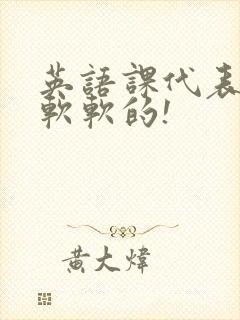 英語課代表
軟軟的!
黄大煒